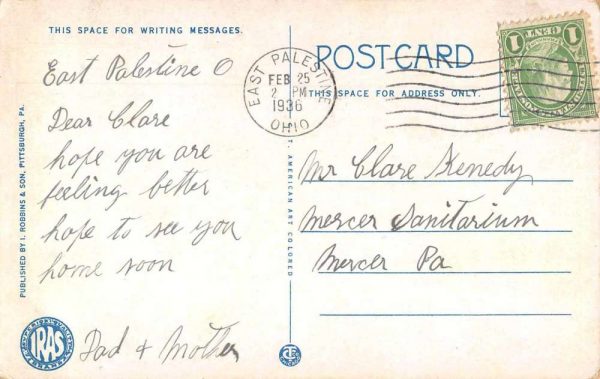 THIS SPACE FOR WRITING MESSAGES.
East Palestine O
Dear Clare
hope you are
feeling better
hope to see you
home soon
Dad & Mother
PUBLISHED BY I. ROBBINS & SON, PITTSBURGH, PA.
IRAS
POSTCARD
THIS SPACE FOR ADDRESS ONLY.
EAST PALESTINE
FEB 25
2 PM
1936
OHIO
1 CENT 1
Mr Clare Kenedy
Mercer Sanitarium
Mercer Pa
T. AMERICAN ART COLORED